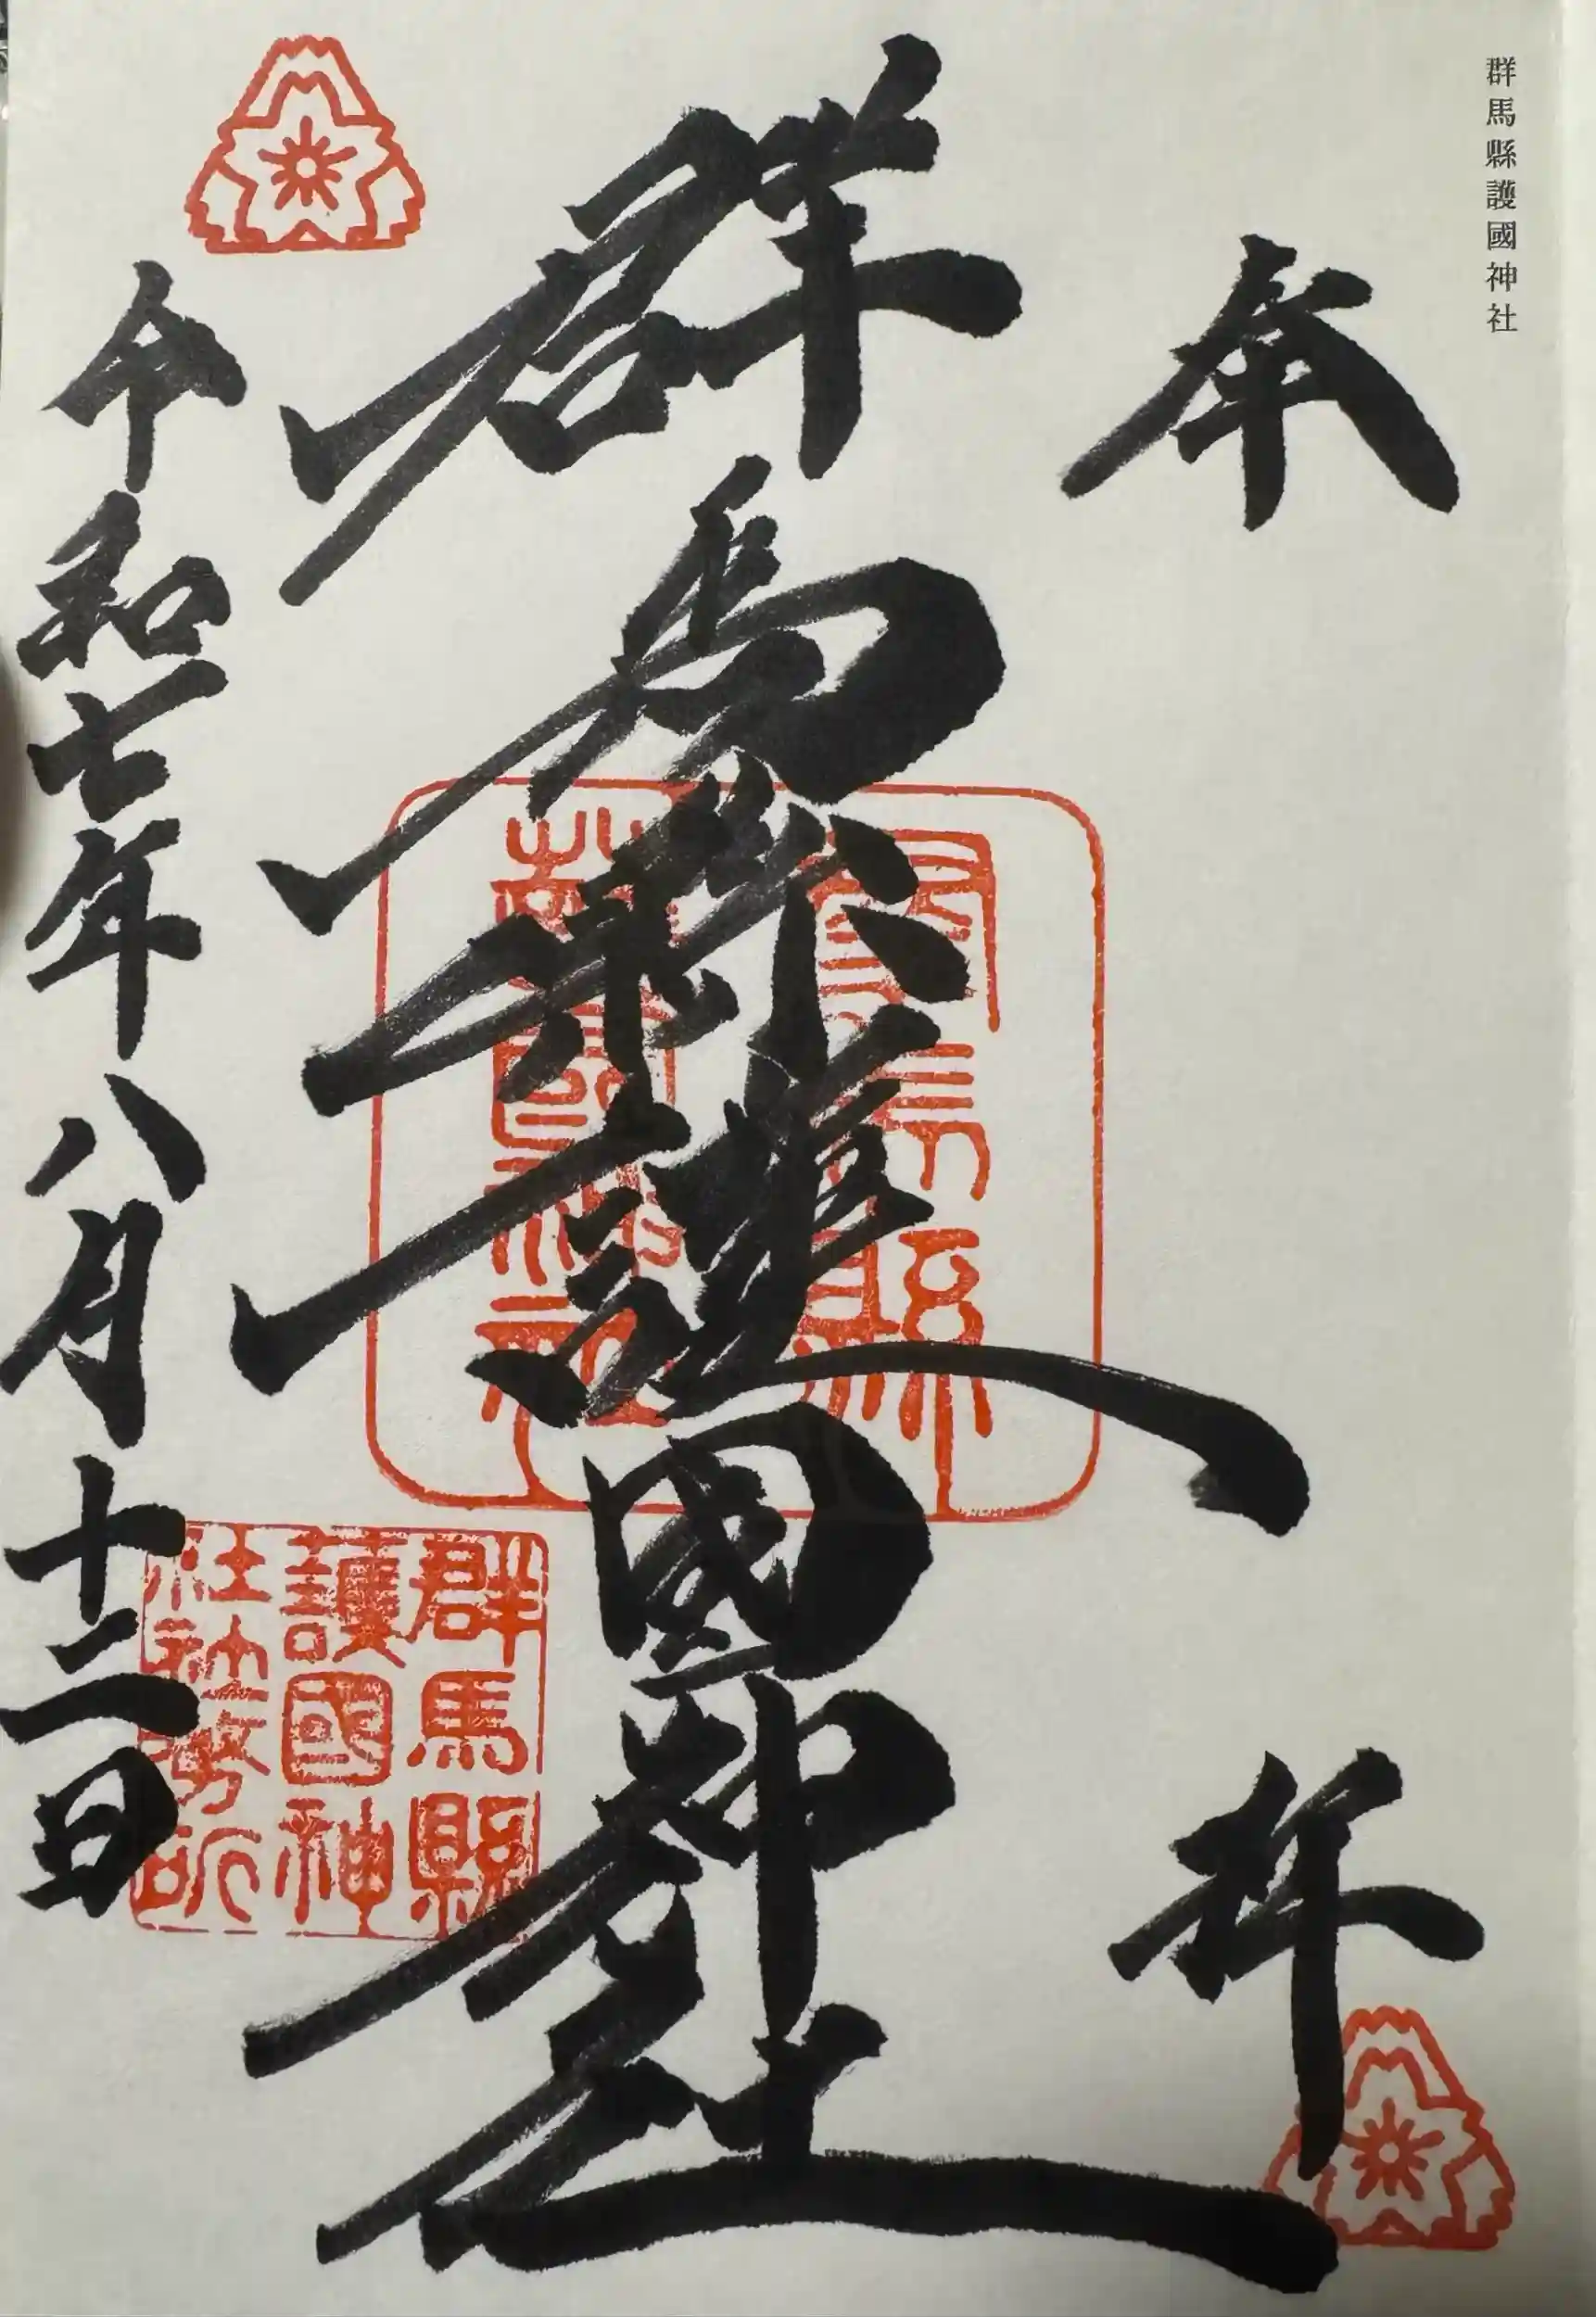 群馬縣護國神社
奉拝
群馬縣護國神社
令和七年八月十二日
群馬縣
護國神社
群馬縣
護國神
社社務所